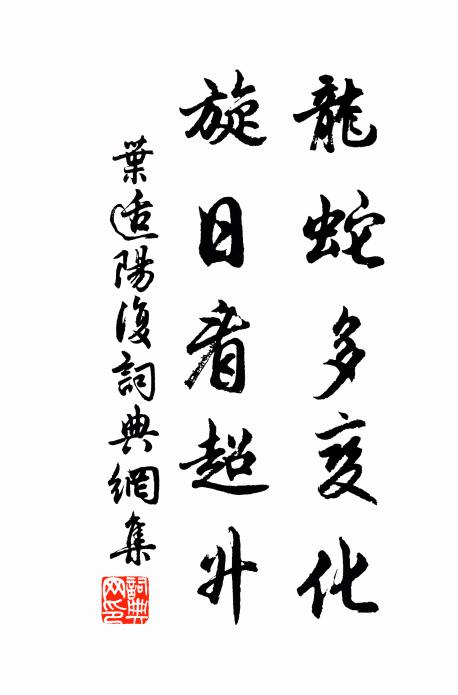 龍蛇多變化
旋日看超升
葉适陽復詞典網集
詞典网印